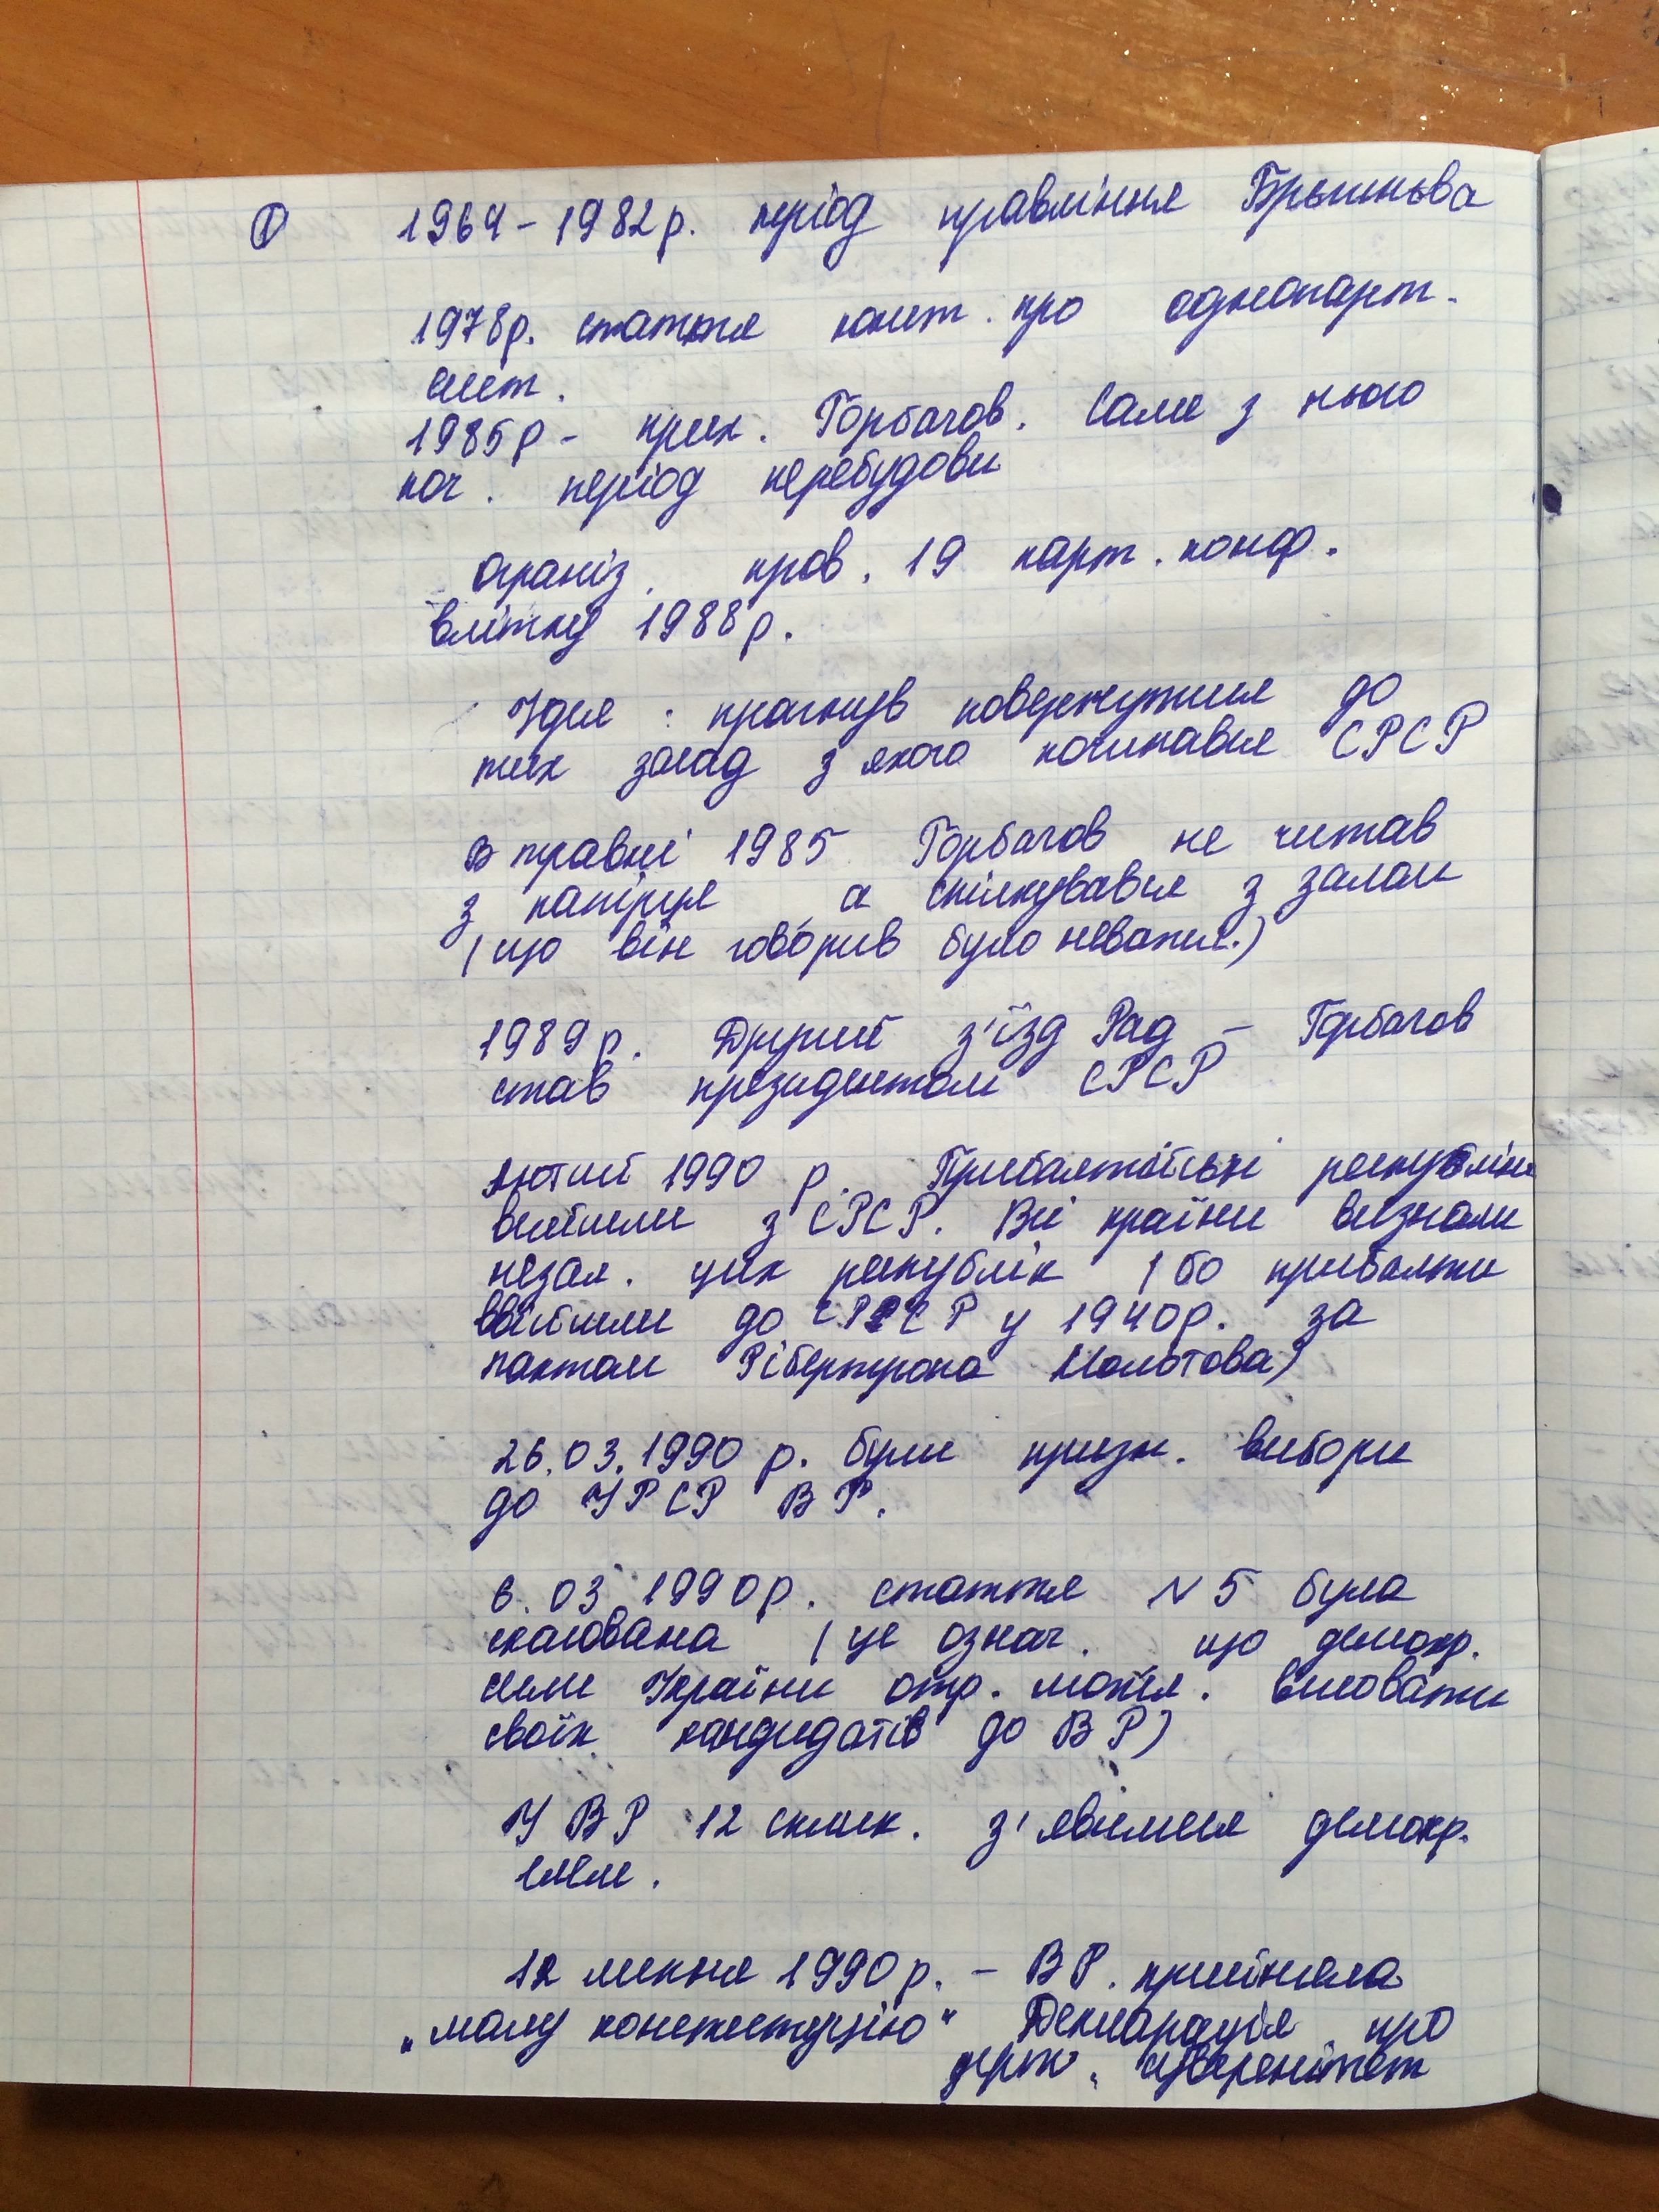 ① 1964 - 1982р. період правління Брежнєва
1978р. стаття конст. про однопарт.
сист.
1985р - прих. Горбачов. Саме з нього
поч. період перебудови
організ. пров. 19 парт. конф.
влітку 1988р.
Ідея : прагнув повернутися до
тих засад з якого починався СРСР
В травні 1985 Горбачов не читав
з папірця а спілкувався з залом
(що він говорив було неважл.)
1989р. Другий з'їзд Рад - Горбачов
став президентом СРСР
лютий 1990 р. Прибалтійські республіки
вийшли з СРСР. Всі країни визнали
незал. цих республік (бо прибалти
ввійшли до СРСР у 1940р. за
пактом Рібертропа Молотова)
26.03.1990 р. були призн. вибори
до УРСР ВР.
6.03 1990р. стаття №5 була
скасована (це означ. що демокр.
сили України отр. можл. висовати
своїх кандидатів до ВР)
У ВР 12 склик. з'явилися демокр.
сили.
12 липня 1990р. - ВР. прийняла
„малу конституцію" Декларація про
держ. суверенітет